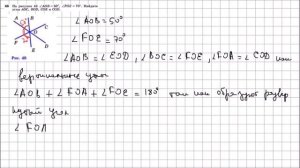 На рисунке 46 ∠AOB = 50°, ∠FOE = 70°. Найдите
углы AOC, BOD, COE и COD.
Рис. 46
∠AOB = 50°
∠FOE = 70°
∠AOB = ∠EOD, ∠BOC = ∠FOE, ∠FOA = ∠COD как
вертикальные углы
∠AOB + ∠FOA + ∠FOE = 180° так как образуют развер
нутый угол
∠FOA